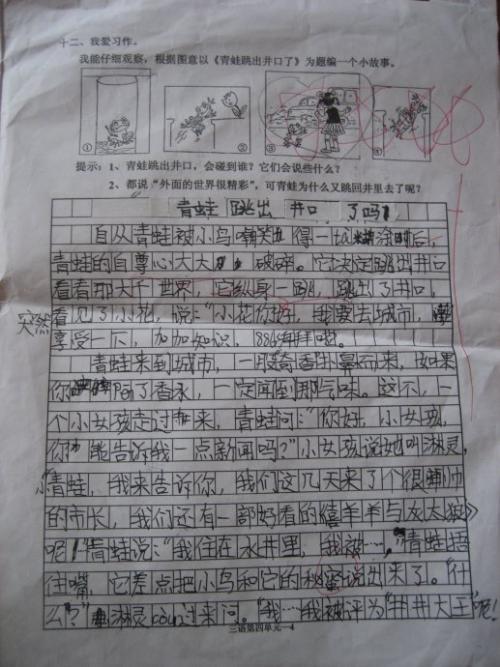 十二、我爱习作。
我能仔细观察，根据图意以《青蛙跳出井口了》为题编一个小故事。
① ② ③ ④
提示：1、青蛙跳出井口，会碰到谁？它们会说些什么？
2、都说“外面的世界很精彩”，可青蛙为什么又跳回井里去了呢？
青蛙跳出井口了吗？
自从青蛙被小鸟嘲笑得一塌糊涂后，
青蛙的自尊心大大破碎。它决定跳出井口
看看那大千世界，它纵身一跳，跳出了井口，
突然看见了小花，说：“小花你好，我要去城市，
享受一下，加加知识，886拜拜啦。
青蛙来到城市，一股奇香扑鼻而来，如果
你阿了香水，一定闻到那气味。这不，一
个小女孩走过来，青蛙问：“你好，小女孩，
你能告诉我一点新闻吗？”小女孩说她叫淋灵，
“小青蛙，我来告诉你，我们这几天来了个很帅
的市长，我们还有一部好看的《喜羊羊与灰太狼》
呢！”青蛙说：“我住在水井里，我被……”青蛙捂
住嘴，它差点把小鸟和它的秘密说出来了。“什
么？”淋灵coun过来问。“我……我被评为“井井大王”呢！
三语第四单元—4